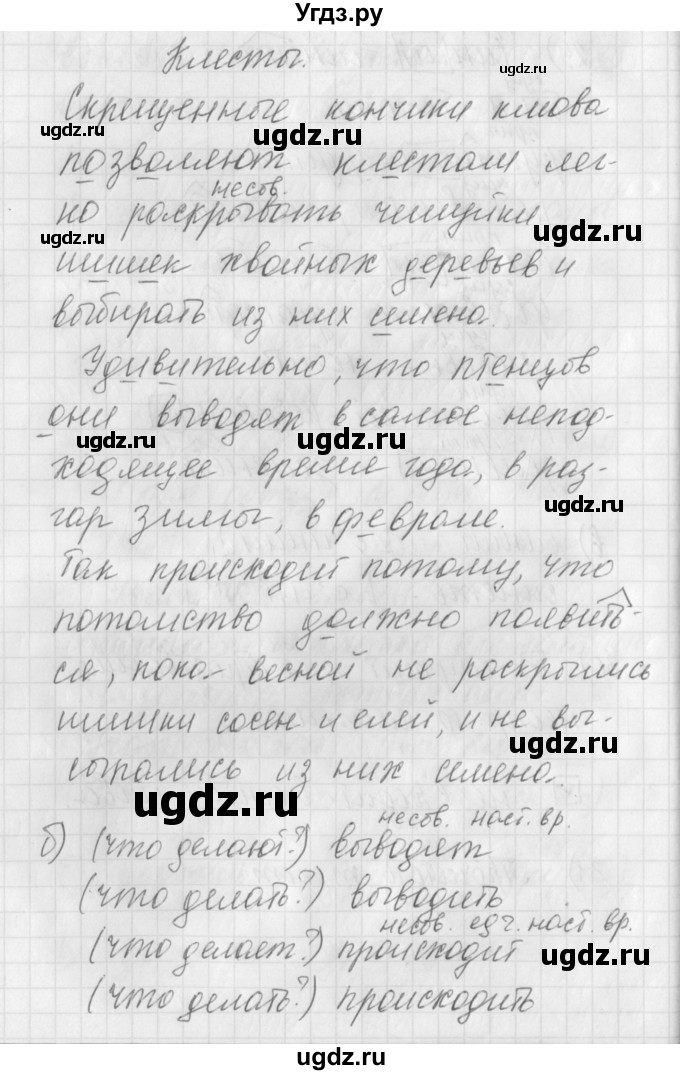 Угдз.ру
Клесты.
ugdz.ru
Скрещенные кончики клюва
ugdz.ru ugdz.ru ugdz.ru
позволяют клестам лег-
несов.
ко раскрывать чешуйки
ugdz.ru ugdz.ru
шишек хвойных деревьев и
выбирать из них семена.
ugdz.ru ugdz.ru
Удивительно, что птенцов
они выводят в самое непод-
ugdz.ru ugdz.ru ugdz.ru
ходящее время года, в раз-
ugdz.ru
гар зимы, в феврале.
Так происходит потому, что
потомство должно появить-
ся, пока весной не раскрылись
шишки сосен и елей, и не вы-
ugdz.ru
сыпались из них семена.
ugdz.ru
несов. наст. вр.
б) (что делают?) выводят
(что делать?) выводить
несов. ед.ч. наст. вр.
(что делает?) происходит
ugdz.ru
(что делать?) происходить
ugdz.ru